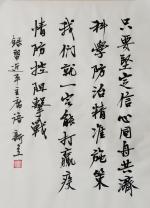 只要坚定信心同舟共濟
科學防治精准施策
我们就一定能打赢疫
情防控阻擊戰
錄習近平主席語 新立